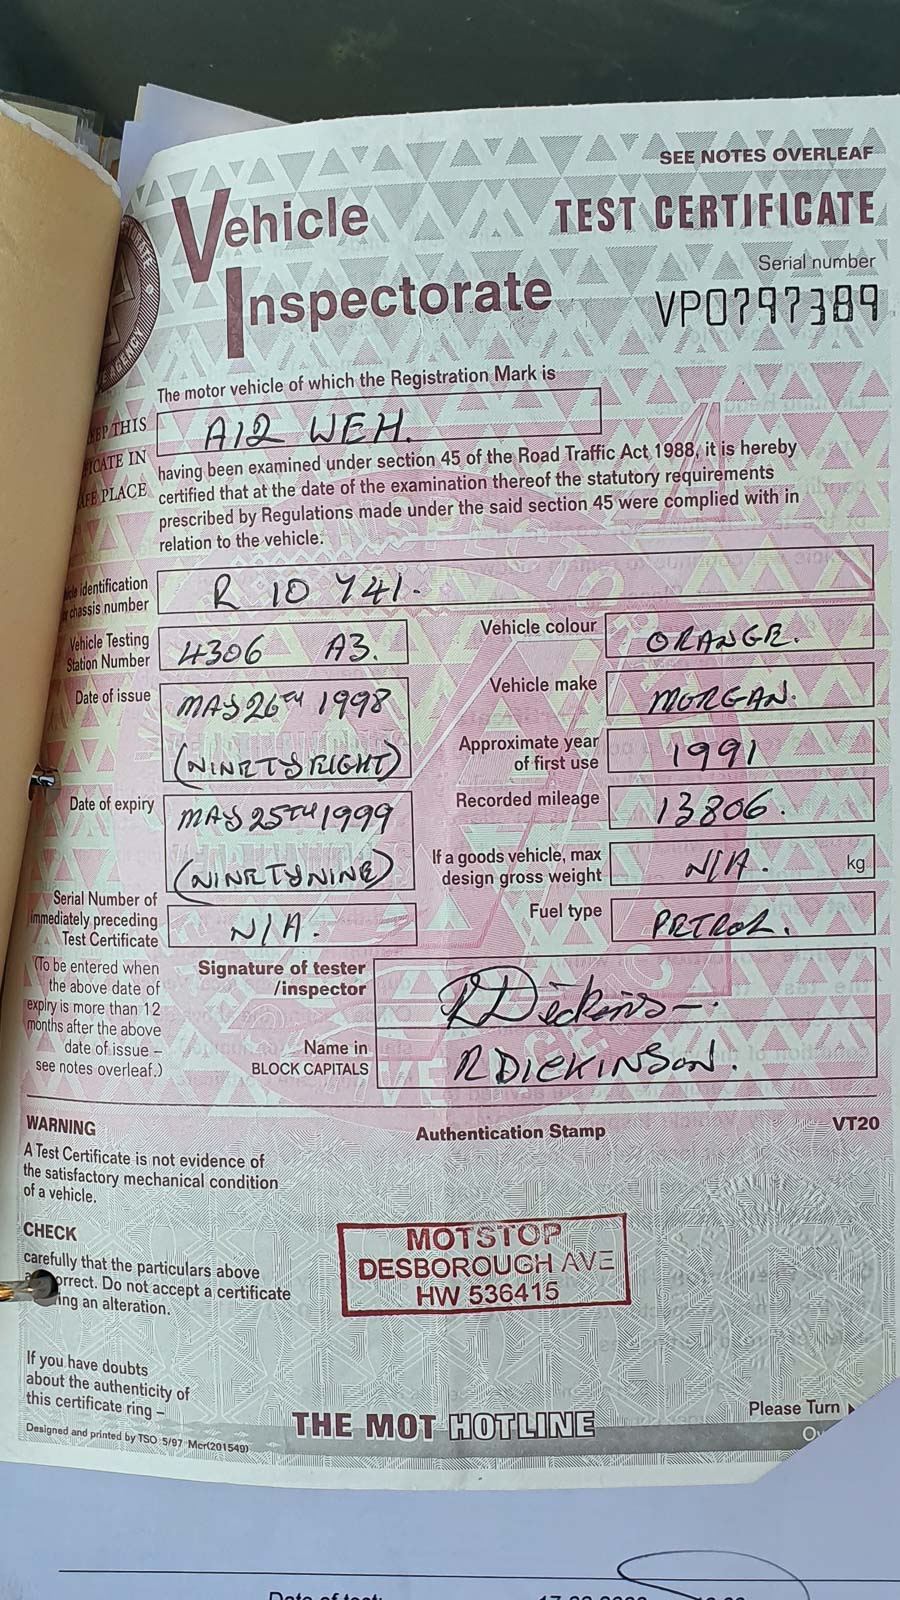 SEE NOTES OVERLEAF
Vehicle
Inspectorate
TEST CERTIFICATE
Serial number
VP0797389
The motor vehicle of which the Registration Mark is
A12 WEH.
THIS
IN
PLACE
having been examined under section 45 of the Road Traffic Act 1988, it is hereby
certified that at the date of the examination thereof the statutory requirements
prescribed by Regulations made under the said section 45 were complied with in
relation to the vehicle.
identification
chassis number
R 10 741.
Vehicle Testing
Station Number
4306 A3.
Vehicle colour
ORANGE.
Date of issue
MAY 26TH 1998
(NINETY EIGHT)
Vehicle make
MORGAN.
Approximate year
of first use
1991
Date of expiry
MAY 25TH 1999
(NINETY NINE)
Recorded mileage
13806.
If a goods vehicle, max
design gross weight
N/A.
kg
Serial Number of
immediately preceding
Test Certificate
N/A.
Fuel type
PETROL.
(To be entered when
the above date of
expiry is more than 12
months after the above
date of issue –
see notes overleaf.)
Signature of tester
/inspector
R Dickinson.
Name in
BLOCK CAPITALS
R DICKINSON.
WARNING
A Test Certificate is not evidence of
the satisfactory mechanical condition
of a vehicle.
Authentication Stamp
VT20
CHECK
carefully that the particulars above
correct. Do not accept a certificate
ing an alteration.
MOTSTOP
DESBOROUGH AVE
HW 536415
If you have doubts
about the authenticity of
this certificate ring –
THE MOT HOTLINE
Please Turn
Designed and printed by TSO 5/97 Mcr(201549)
Date of test: